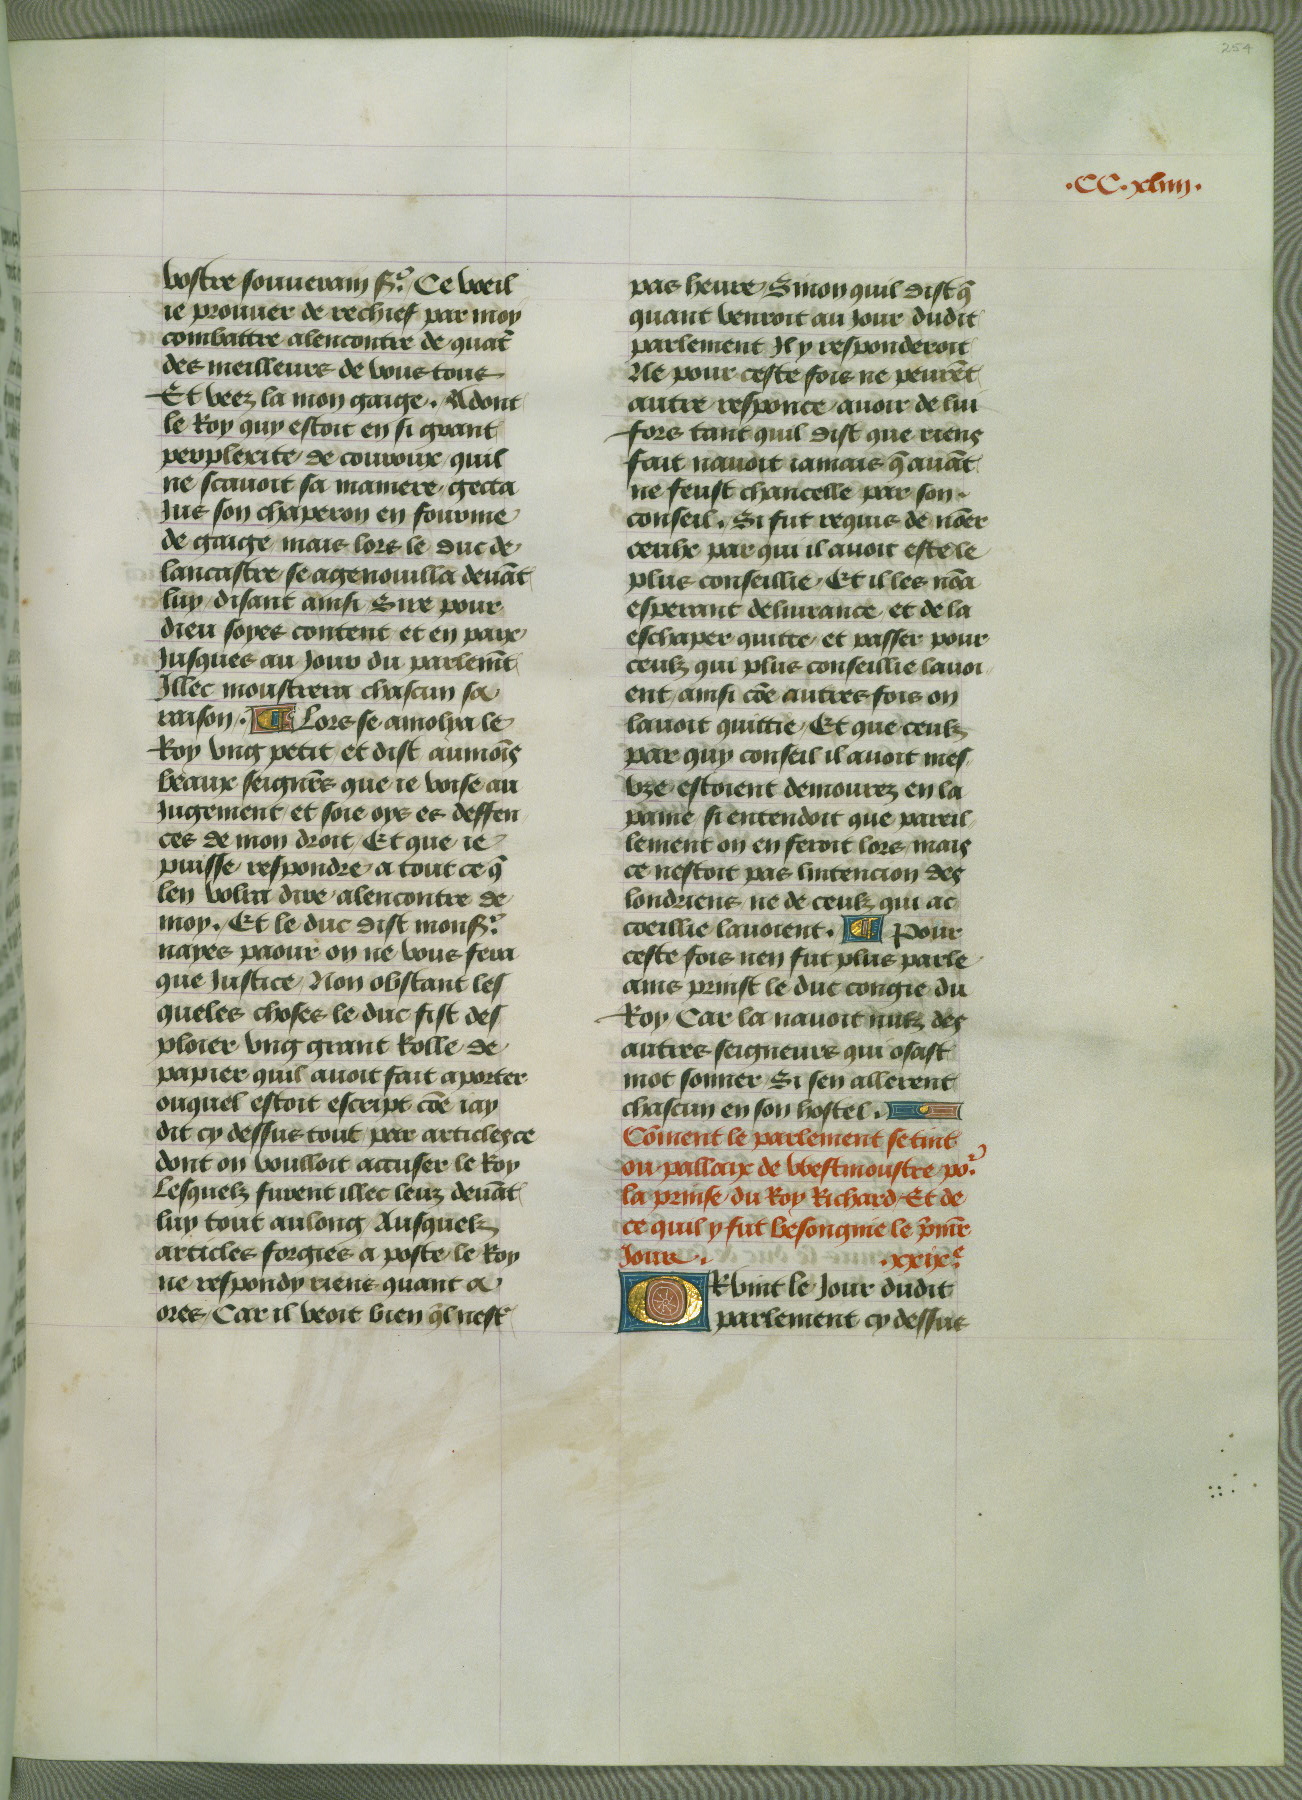 254
·CC·xliiij·
vostre souuerain sr. Ce vœil
ie prouuer de rechief par moy
combattre alencontre de quat̃
des meilleurs de vous tous
Et veez la mon gaige. Adont
le Roy quy estoit en si grant
perplexite de couroux quil
ne scauoit sa maniere gecta
Jus son chaperon en fourme
de gaige mais lors le duc de
lancastre se agenouilla deuãt
luy disant ainsi Sire pour
dieu soyes content et en paix
Jusques au Jour du parlem̃t
Illec moustrera chascun sa
raison. Lors se amolya le
Roy vng petit et dist aumoĩs
beaux seignr̃s que ie voise au
Jugement et soie oys es deffen
ces de mon droit Et que ie
puisse respondre a tout ce q̃
len volra dire alencontre de
moy. Et le duc dist monsr.
nayes paour on ne vous fera
que Justice Non obstant les
queles choses le duc fist des
ploier vng grant Rolle de
papier quil auoit fait aporter
ouquel estoit escript cõe iay
dit cy dessus tout par articles ce
dont on voulloit accuser le Roy
Lesquelz furent illec leuz deuãt
luy tout aulong Ausquelz
articles forgies a poste le Roy
ne respondy riens quant a
ores Car il veoit bien q̃l nest
pas heure Sinon quil dist q̃
quant venroit au Jour dudit
parlement Il y responderoit
Ne pour ceste fois ne peurẽt
autre responce auoir de lui
fors tant quil dist que riens
fait nauoit iamais q̃ auãt
ne feust chancelle par son
conseil. Si fut requis de nõer
ceulx par qui il auoit este le
plus conseillie Et il les nõa
esperant deliurance et de la
eschaper quitte et passer pour
ceulz qui plus conseillie lauoi
ent ainsi cõe autres fois on
lauoit quittie Et que ceulz
par quy conseil il auoit mes
vze estoient demourez en la
paine si entendoit que pareil
lement on en feroit lors mais
ce nestoit pas lintencion des
londriens ne de ceulz qui ac
coeillie lauoient. Pour
ceste fois nen fut plus parle
ains prinst le duc congie du
Roy Car la nauoit nulz des
autres seigneurs qui osast
mot sonner Si sen allerent
chascun en son hostel.
Cõment le parlement se tint
ou pallaix de westmoustre por
la prinse du Roy Richard Et de
ce quil y fut besongnie le p̃mier
Jour. ·xxixe.
OR vint le Jour dudit
parlement cy dessus